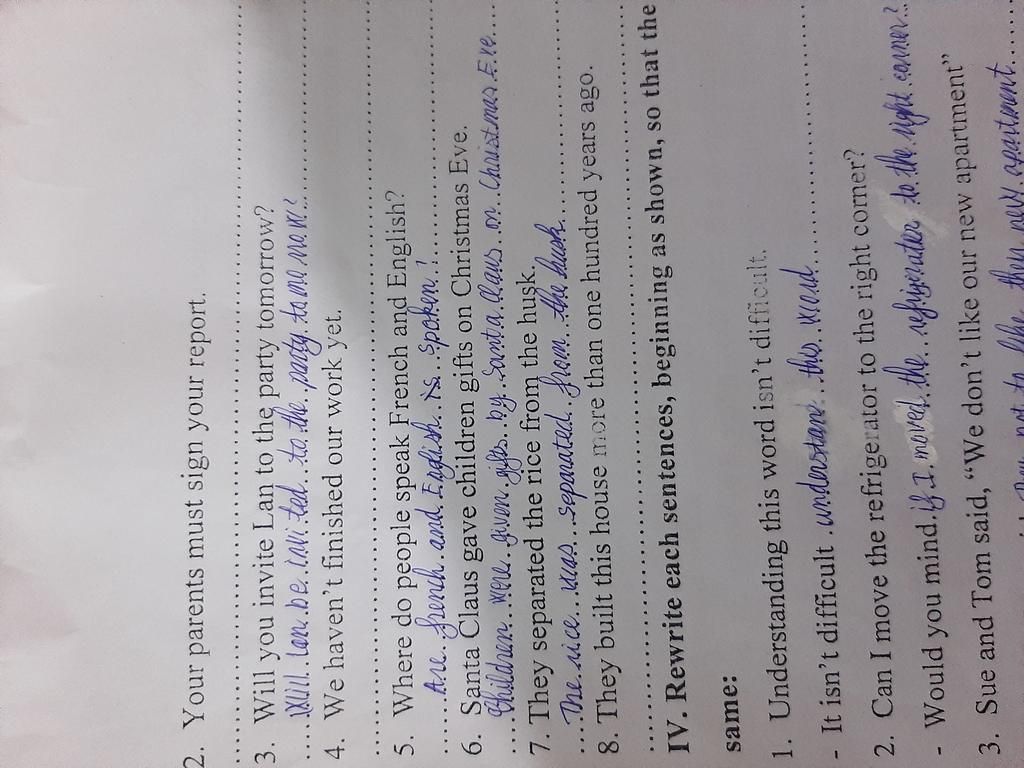 2. Your parents must sign your report.
3. Will you invite Lan to the party tomorrow?
Will lan be invited to the party tomorrow?
4. We haven't finished our work yet.
5. Where do people speak French and English?
Are french and English is spoken?
6. Santa Claus gave children gifts on Christmas Eve.
Children were given gifts by Santa Claus on Christmas Eve
7. They separated the rice from the husk.
The rice was separated from the husk
8. They built this house more than one hundred years ago.
IV. Rewrite each sentences, beginning as shown, so that the
same:
1. Understanding this word isn't difficult.
- It isn't difficult understand this word
2. Can I move the refrigerator to the right corner?
- Would you mind if I moved the refrigerator to the right corner?
3. Sue and Tom said, "We don't like our new apartment"
not to like they new apartment